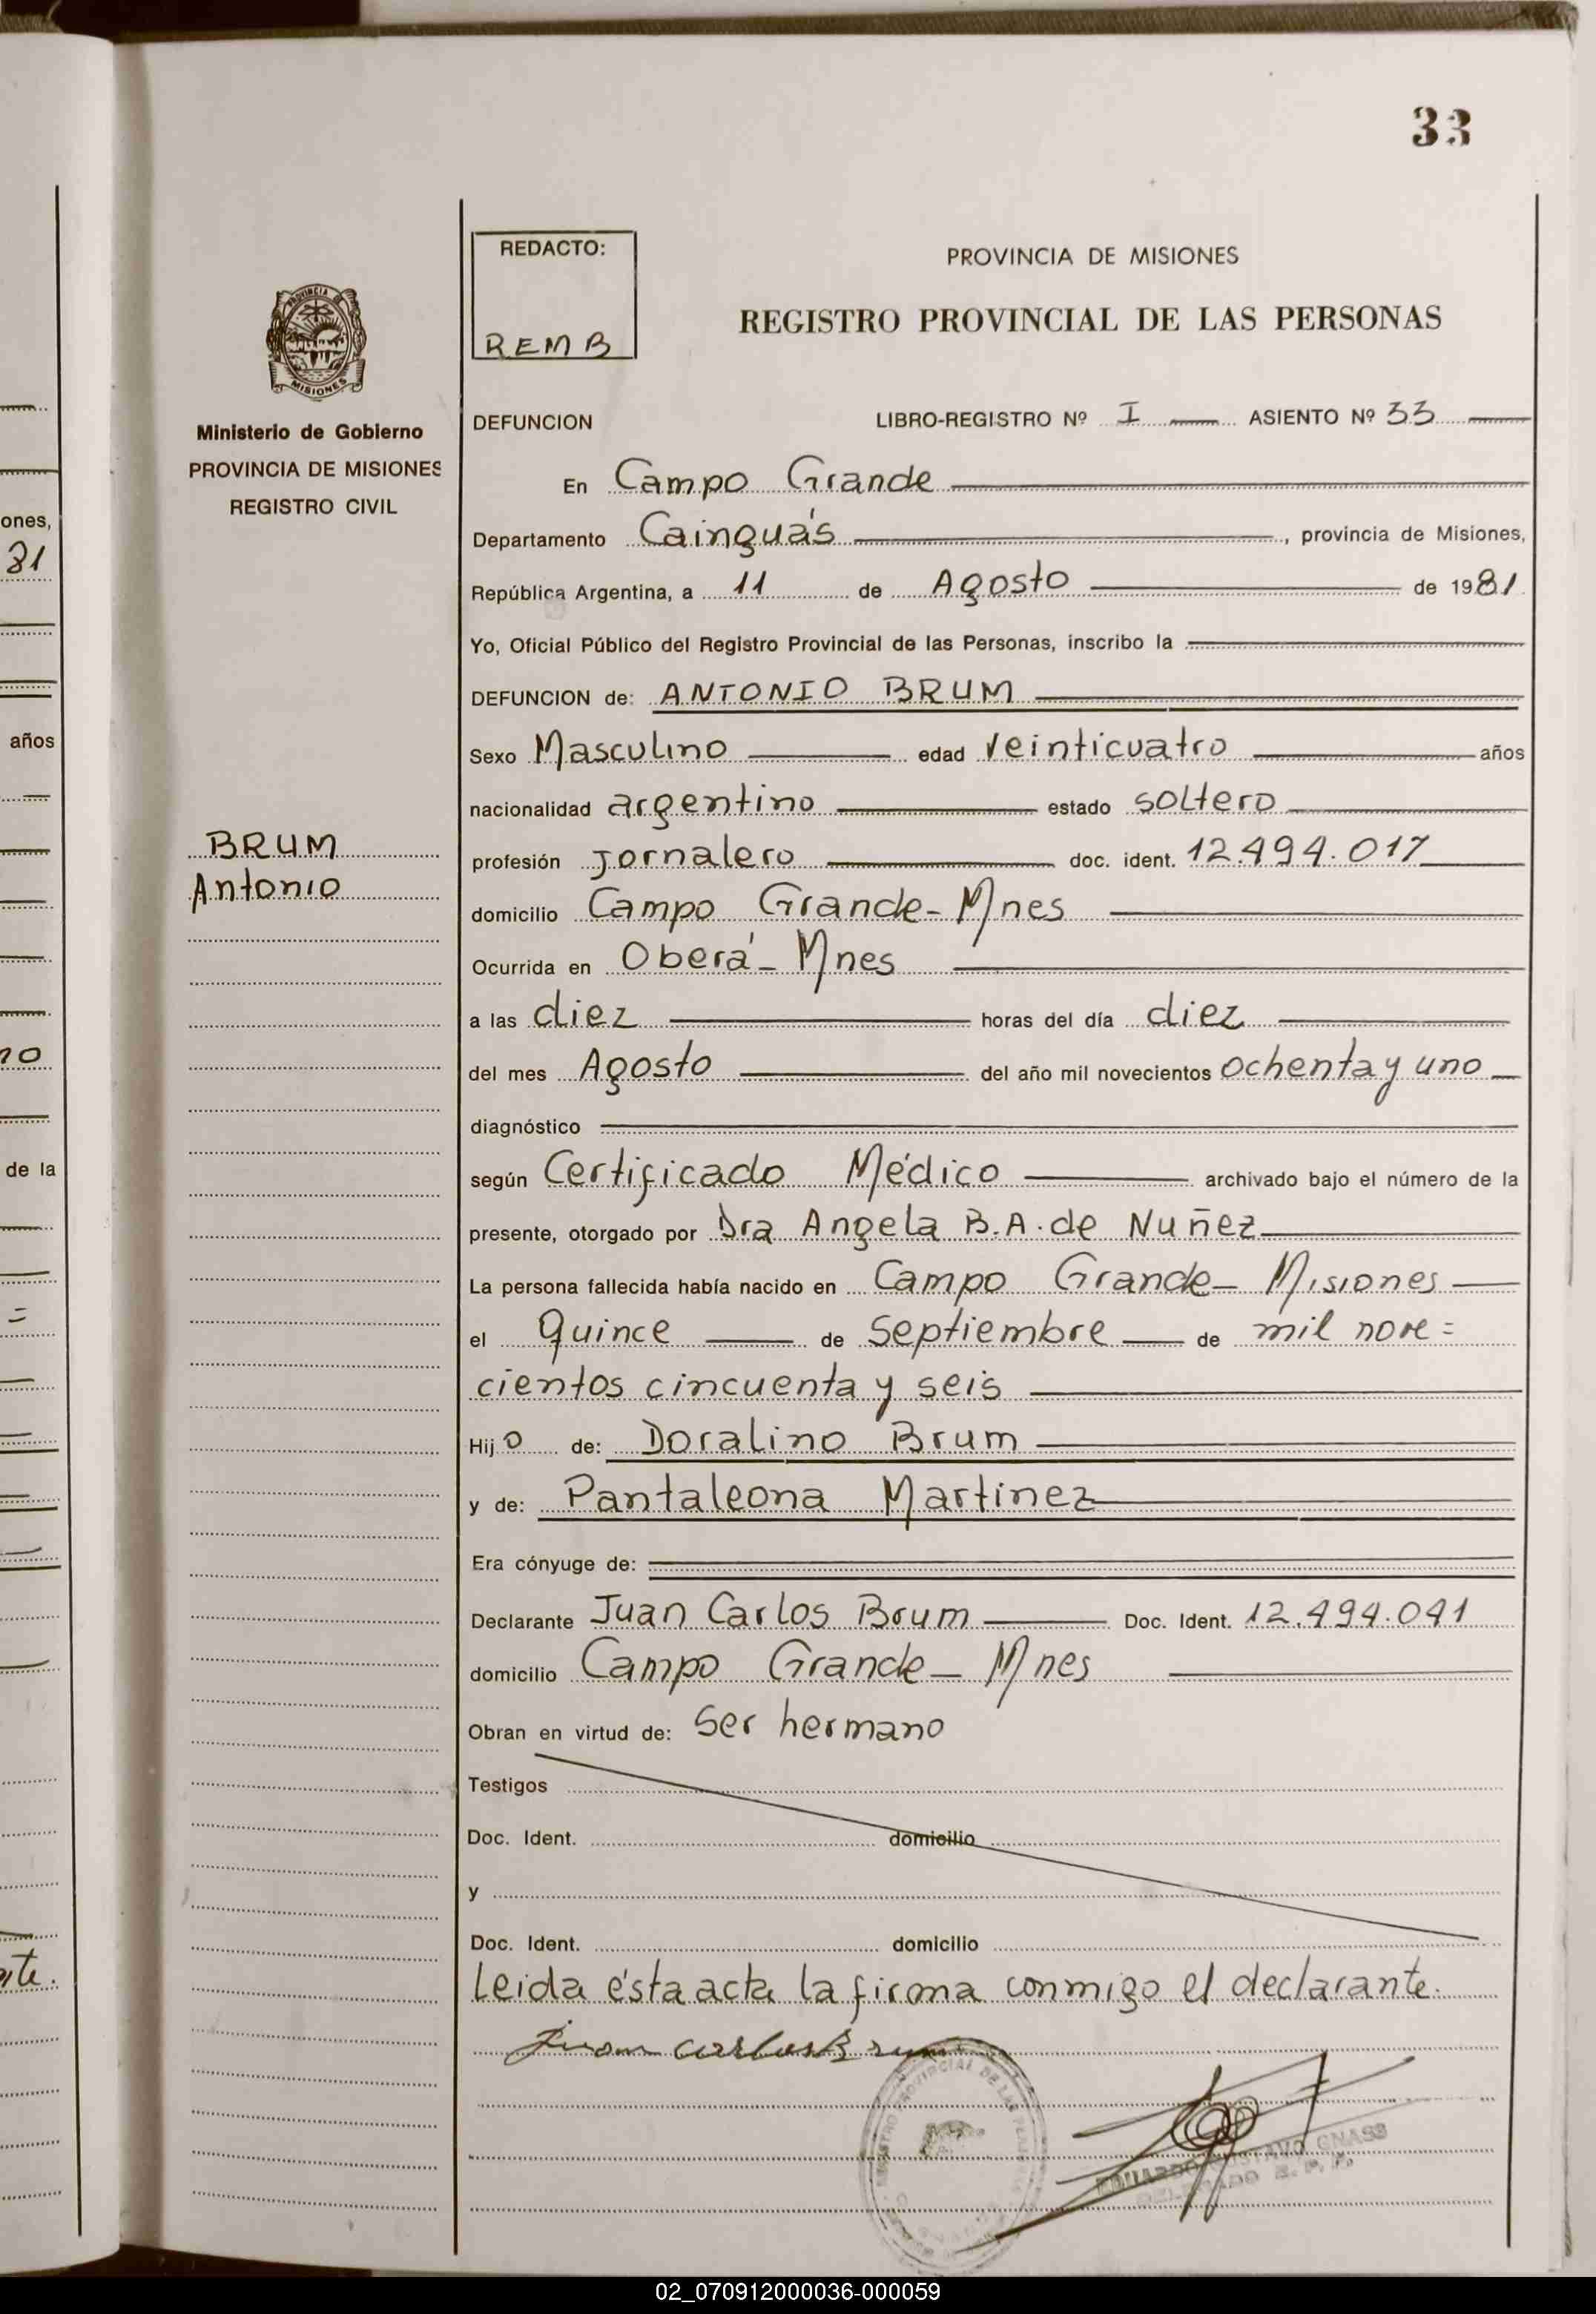 33
REDACTO:
REMB
PROVINCIA DE MISIONES
REGISTRO PROVINCIAL DE LAS PERSONAS
PROVINCIA DE
MISIONES
Ministerio de Gobierno
PROVINCIA DE MISIONES
REGISTRO CIVIL
BRUM
Antonio
ones,
81
años
no
de la
=
DEFUNCION LIBRO-REGISTRO Nº I ASIENTO Nº 33
En Campo Grande
Departamento Cainguás, provincia de Misiones,
República Argentina, a 11 de Agosto de 1981
Yo, Oficial Público del Registro Provincial de las Personas, inscribo la
DEFUNCION de: ANTONIO BRUM
Sexo Masculino edad veinticuatro años
nacionalidad argentino estado soltero
profesión jornalero doc. ident. 12.494.017
domicilio Campo Grande- Mnes
Ocurrida en Oberá- Mnes
a las diez horas del día diez
del mes Agosto del año mil novecientos ochenta y uno
diagnóstico
según Certificado Médico archivado bajo el número de la
presente, otorgado por Dra Angela B.A. de Nuñez
La persona fallecida había nacido en Campo Grande- Misiones
el quince de septiembre de mil nove=
cientos cincuenta y seis
Hijo de: Doralino Brum
y de: Pantaleona Martinez
Era cónyuge de:
Declarante Juan Carlos Brum Doc. Ident. 12.494.041
domicilio Campo Grande- Mnes
Obran en virtud de: ser hermano
Testigos
Doc. Ident. domicilio
y
Doc. Ident. domicilio
Leida ésta acta la firma conmigo el declarante.
Juan Carlos Brum
REGISTRO PROVINCIAL DE LAS
EDUARDO GUSTAVO GNASS
DELEGADO R.P.P.
02_070912000036-000059